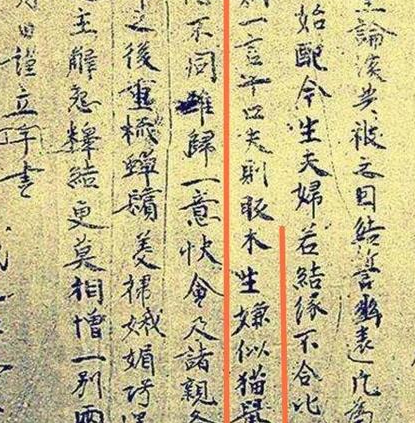 論談共被之因結誓幽遠凡為
始配今生夫婦若結緣不合比
則一言十口夫則販木生嫌似猫鼠
不同難歸一意快會及諸親各
之後重梳蟬鬢美掃娥媚巧
之主解怨釋結更莫相憎一別兩
日謹立手書